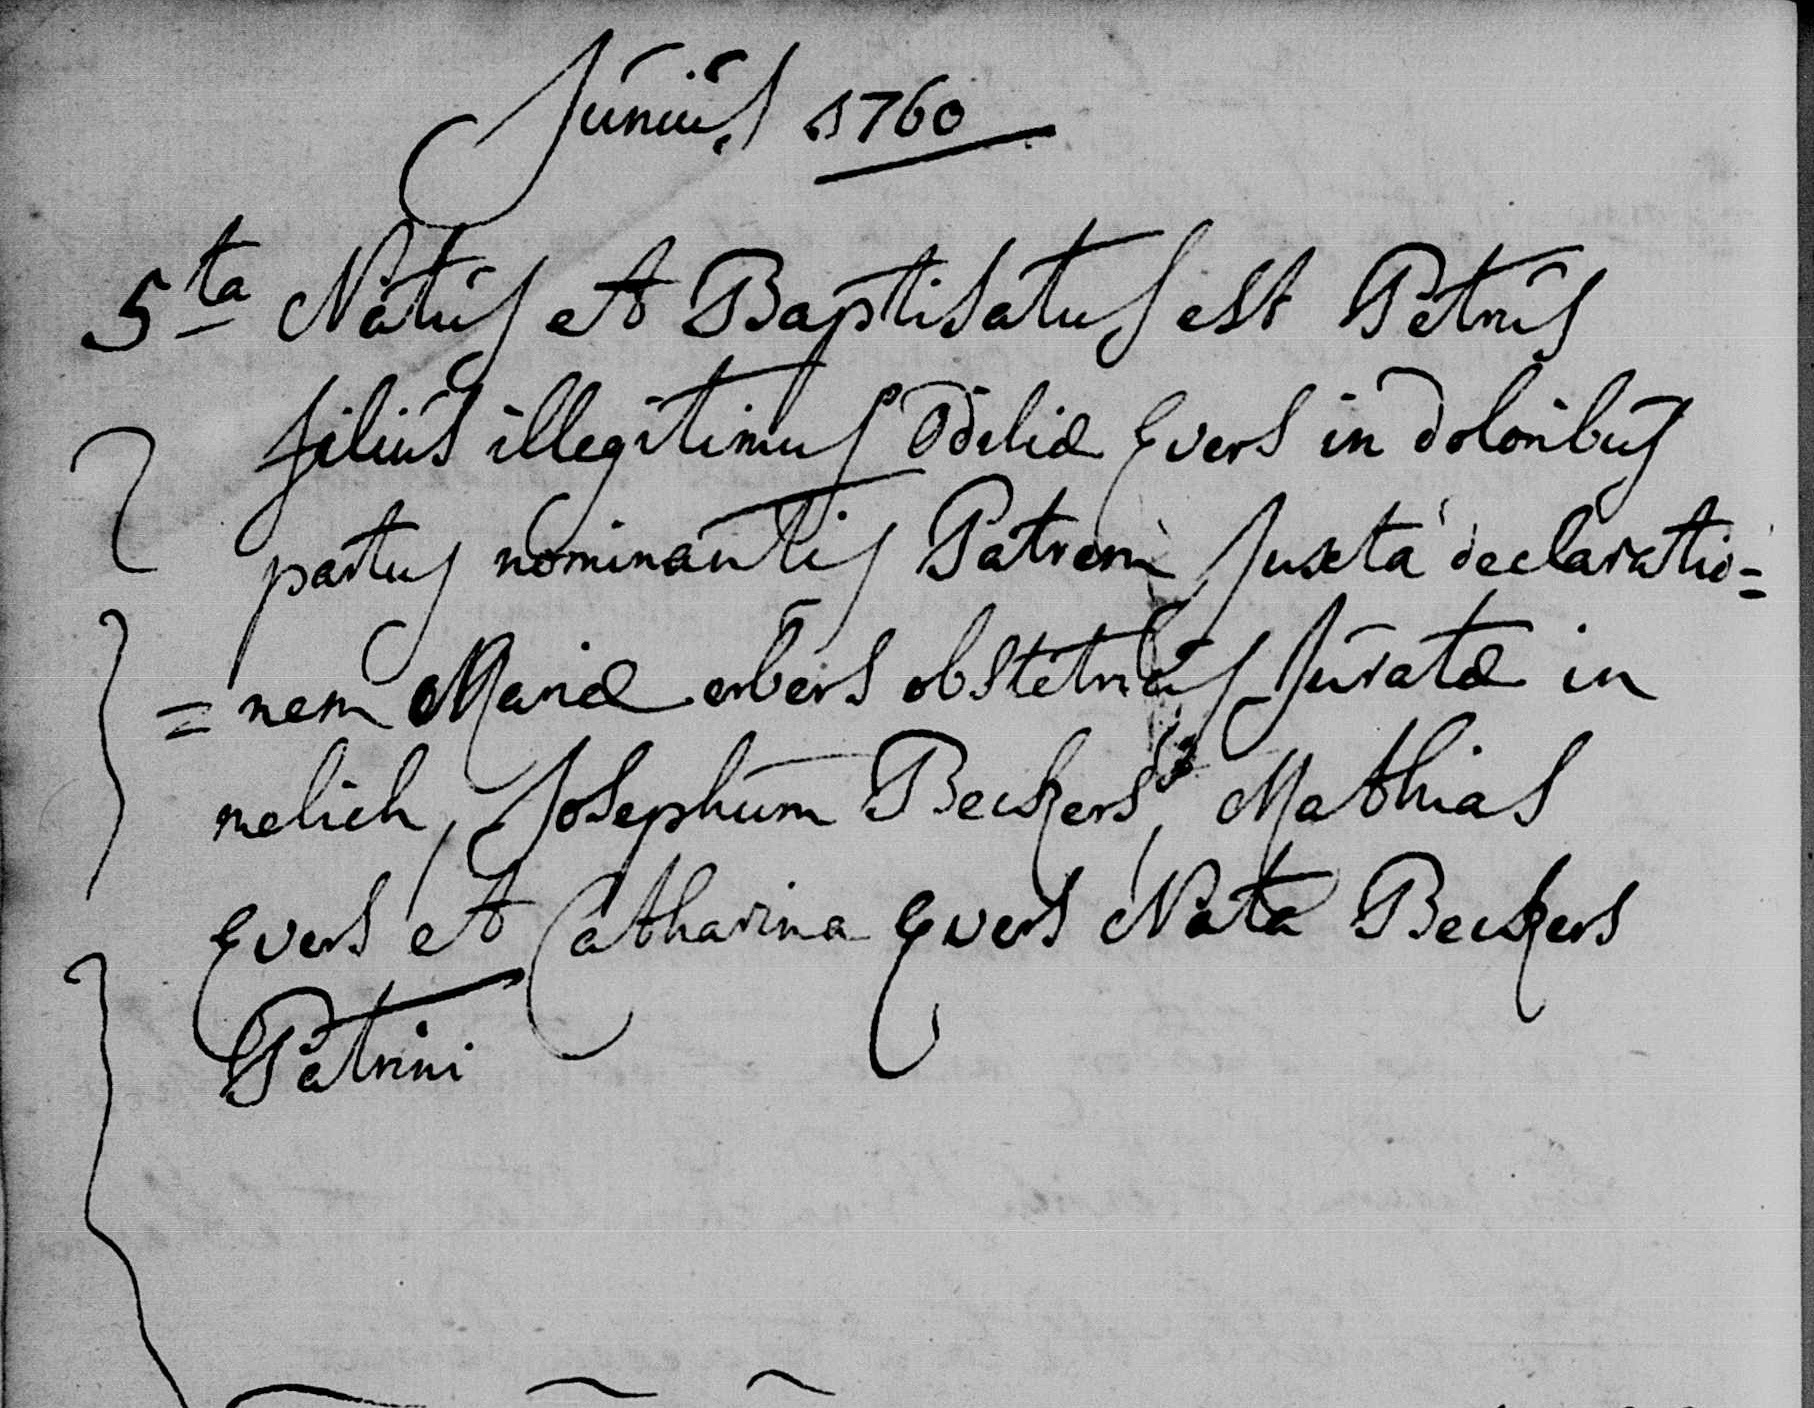 Junius 1760
5ta Natus et Baptisatus est Petrus
filius illegitimus Odeliæ Evers in doloribus
partus nominantis Patrem Juxta declaratio=
=nem Mariæ erbers obstetricis Juratæ in
melich, Josephum Beckers, Mathias
Evers et Catharina Evers Nata Beckers
Patrini